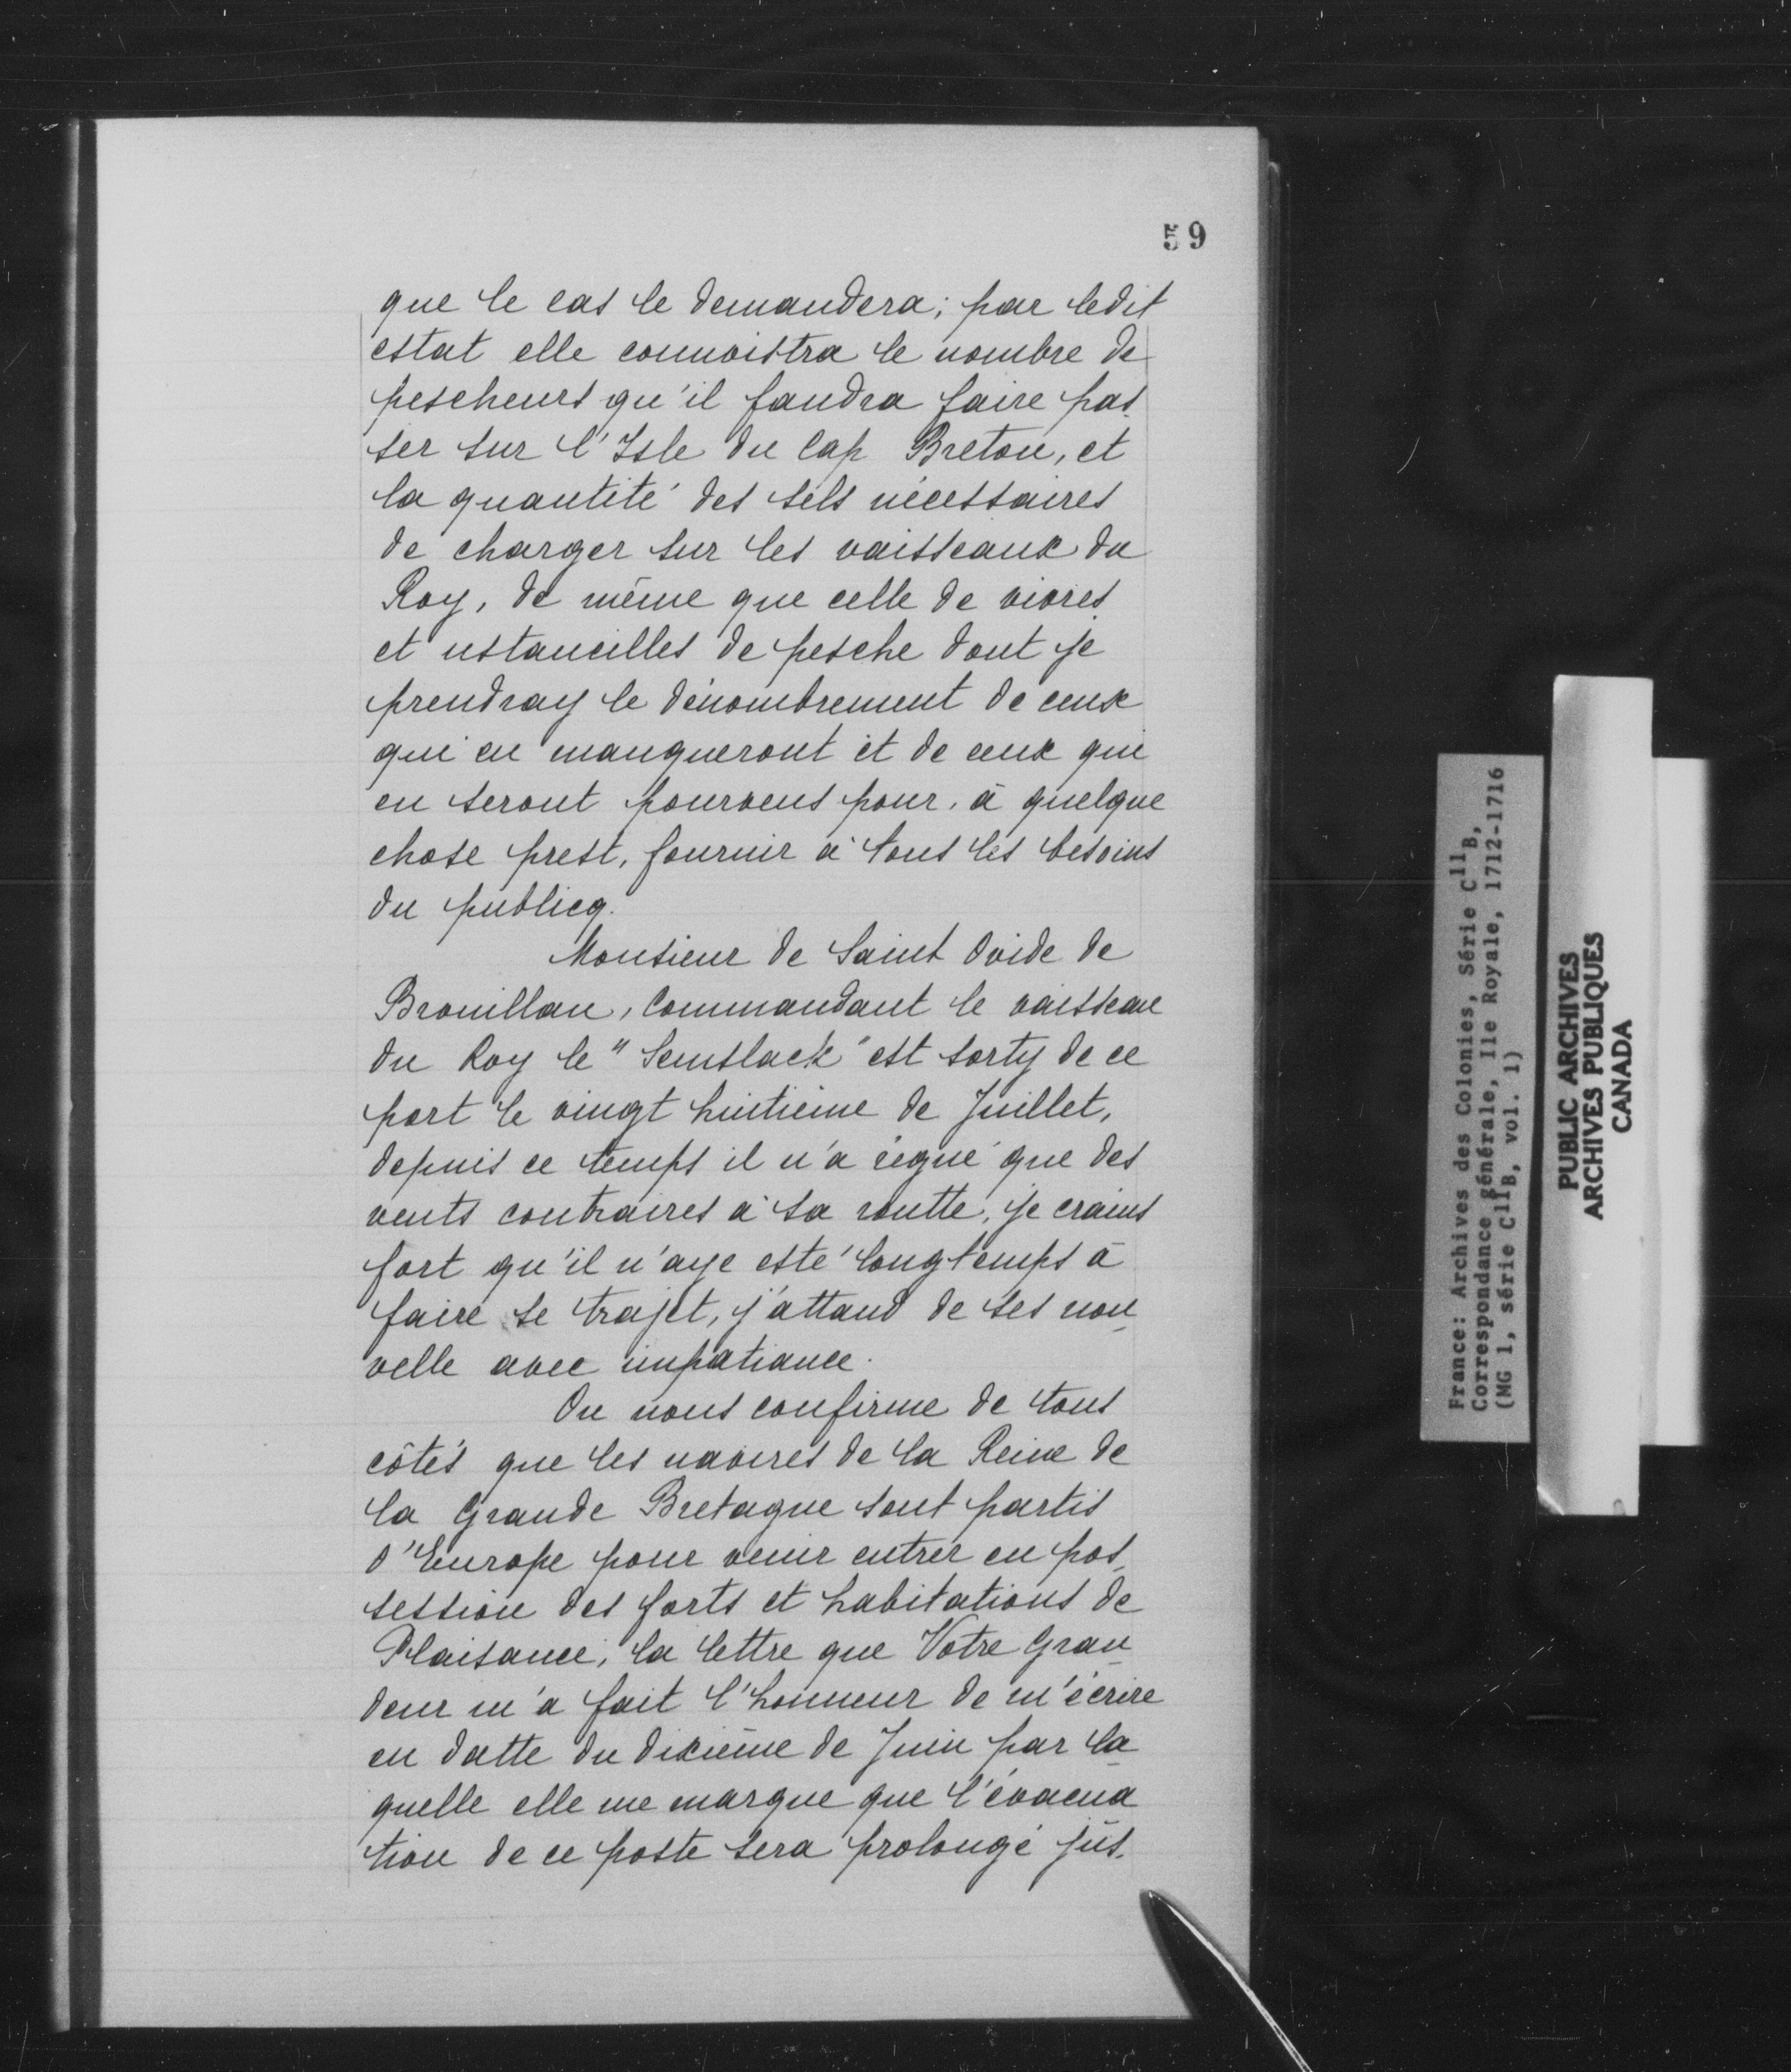 59
que le cas le demandera; par ledit
estat elle connoistra le nombre de
pescheurs qu'il faudra faire pas-
ser sur l'Isle du Cap Breton, et
la quantité des sels nécessaires
de charger sur les vaisseaux du
Roy, de même que celle de vivres
et ustancilles de pesche dont je
prendray le dénombrement de ceux
qui en manqueront et de ceux qui
en seront pourveus pour, à quelque
chose prest, fournir à tous les besoins
du publicq.
Monsieur de Saint Ovide de
Brouillan, Commandant le vaisseau
du Roy le "Semslack" est sorty de ce
port le vingt huitième de Juillet,
depuis ce temps il n'a régné que des
vents contraires à sa routte, je crains
fort qu'il n'aye esté longtemps à
faire se trajet, j'attand de ses nou-
velle avec impatiance.
On nous confirme de tous
côtés que les navires de la Reine de
la Grande Bretagne sont partis
d'Europe pour venir entrer en pos-
session des forts et habitations de
Plaisance, la lettre que Votre Gran-
deur m'a fait l'honneur de m'écrire
en datte du dixième de Juin par la-
quelle elle me marque que l'évacua
tion de ce poste sera prolongé jus-
France: Archives des Colonies, Série C11B,
Correspondance générale, Ile Royale, 1712-1716
(MG 1, série C11B, vol. 1)
PUBLIC ARCHIVES
ARCHIVES PUBLIQUES
CANADA